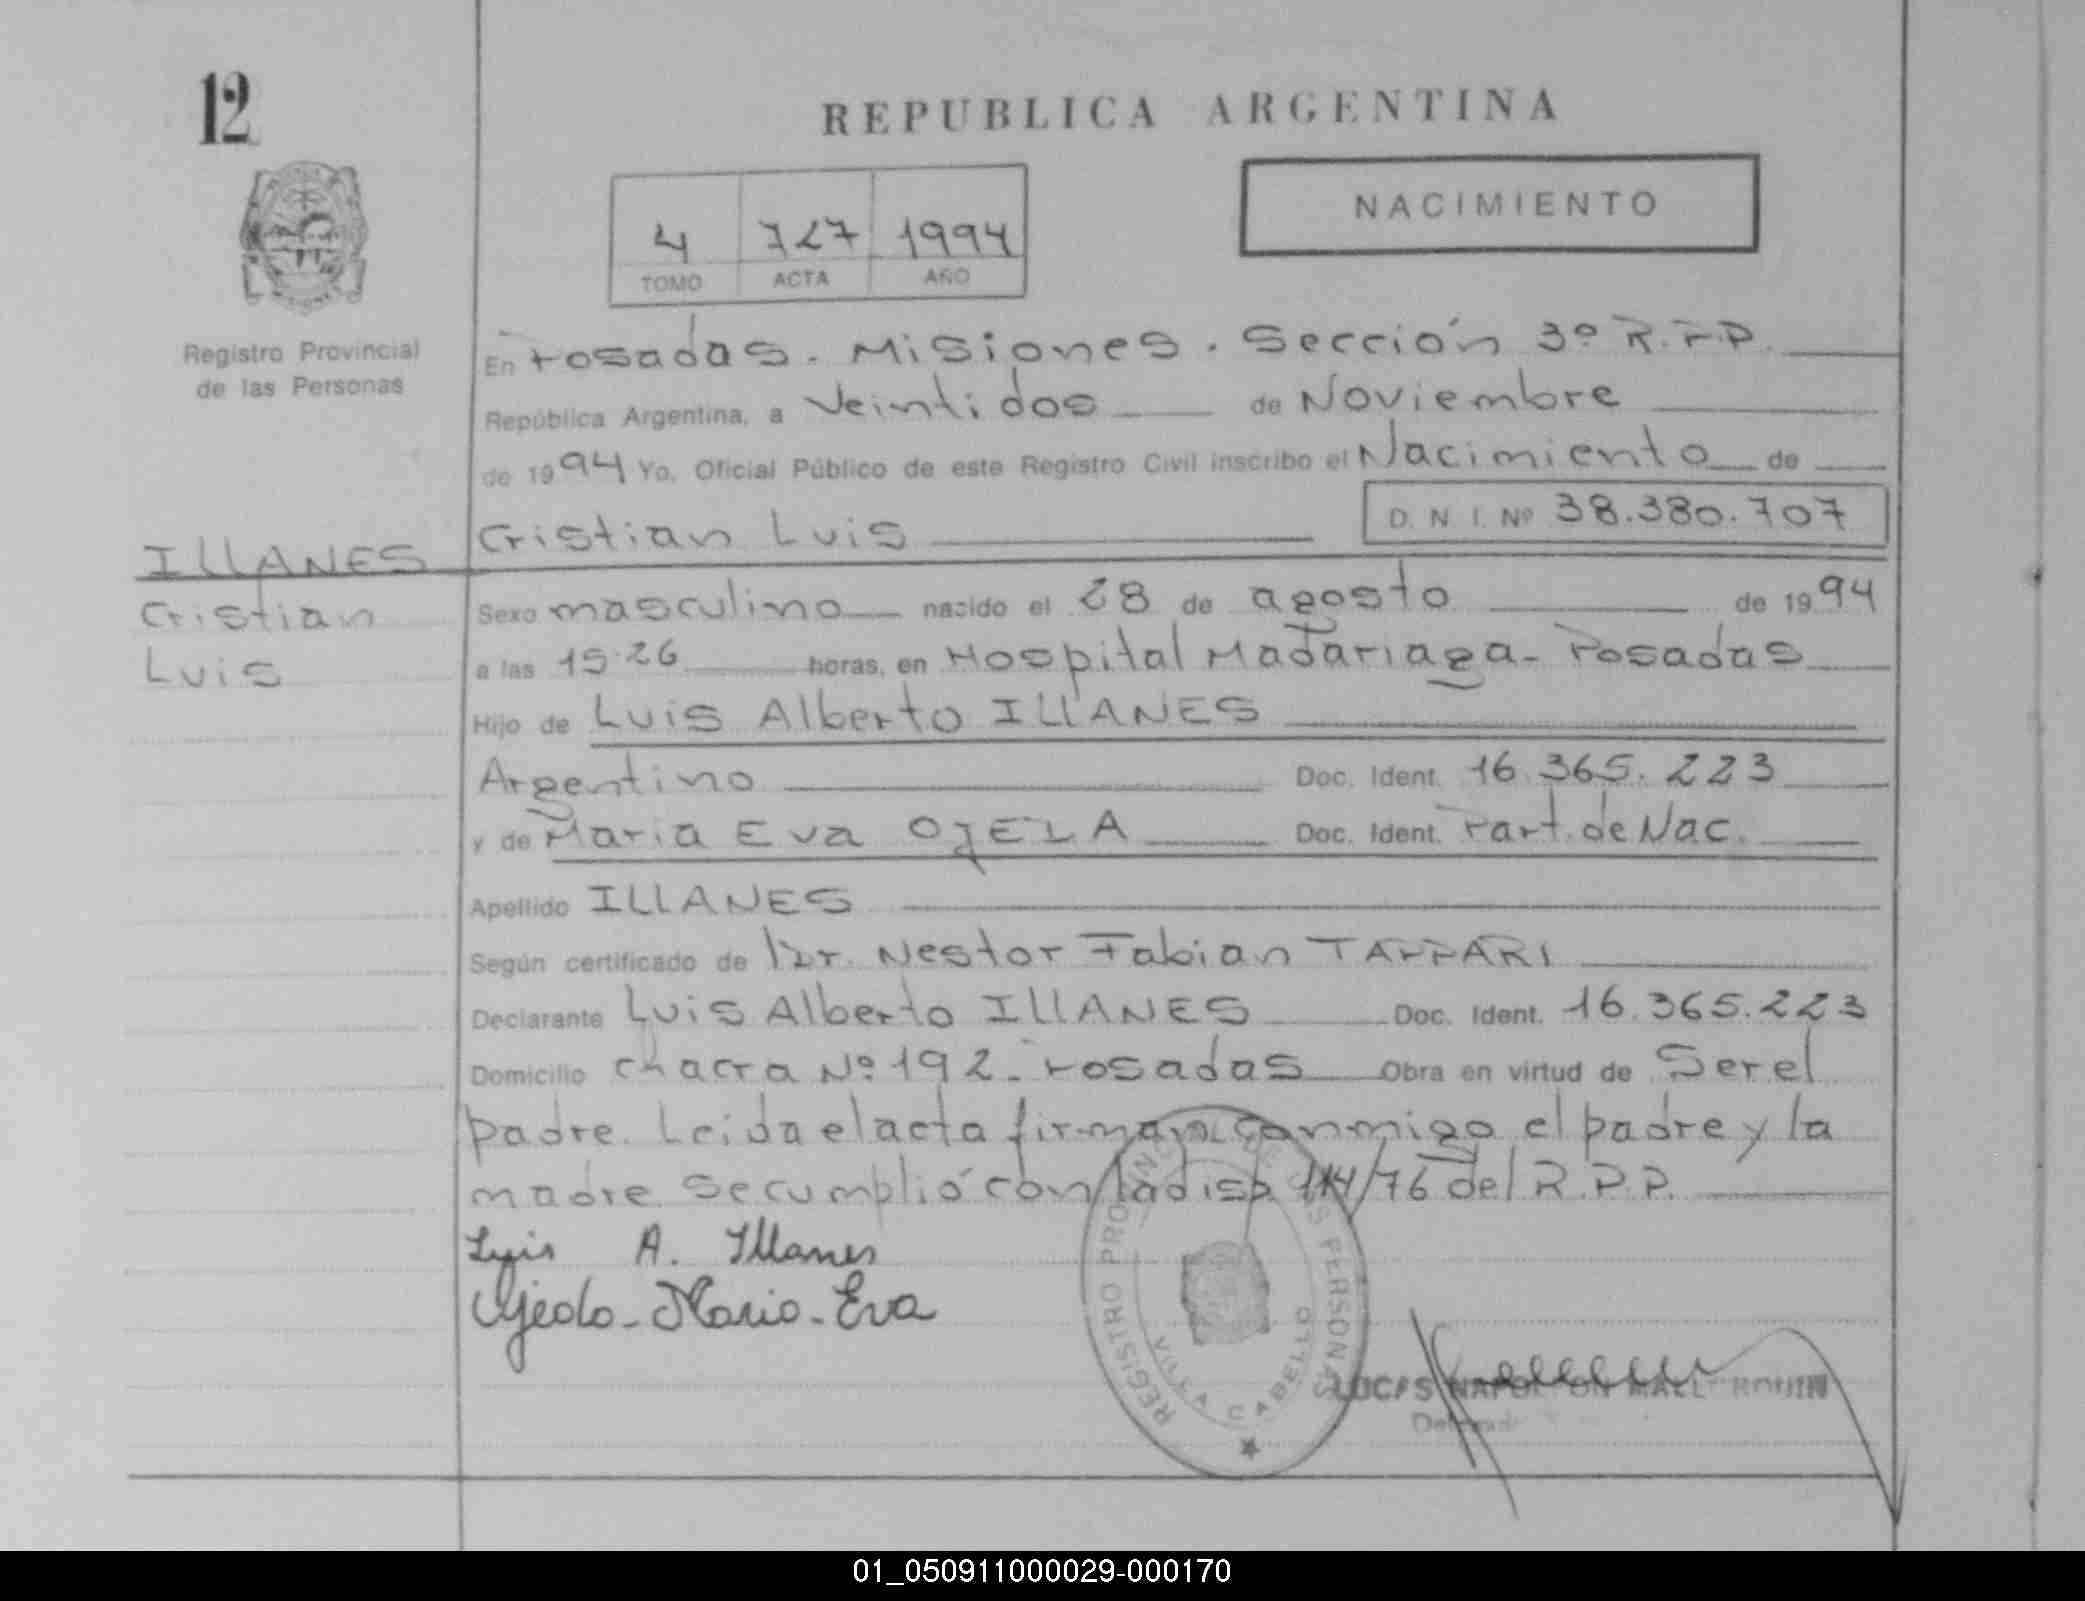 12
REPUBLICA ARGENTINA
NACIMIENTO
4 727 1994
TOMO ACTA AÑO
Registro Provincial
de las Personas
En Posadas. Misiones. Sección 3º R.P.P.
República Argentina, a Veintidos de Noviembre
de 1994 Yo, Oficial Público de este Registro Civil inscribo el Nacimiento de
Cristian Luis D. N. I. Nº 38.380.707
ILLANES
Cristian
Luis
Sexo masculino nacido el 28 de agosto de 1994
a las 15.26 horas, en Hospital Madariaga - Posadas
Hijo de Luis Alberto ILLANES
Argentino Doc. Ident. 16.365.223
y de Maria Eva OJEDA Doc. Ident. Part. de Nac.
Apellido ILLANES
Según certificado de Dr. Nestor Fabian TAPPARI
Declarante Luis Alberto ILLANES Doc. Ident. 16.365.223
Domicilio chacra Nº 192 - Posadas Obra en virtud de Ser el
padre. Leida el acta firman conmigo el padre y la
madre. Se cumplió con la disp. 114/76 del R.P.P.
Luis A. Illanes
Ojeda - Maria - Eva
REGISTRO PROVINCIAL DE LAS PERSONAS
VILLA CABELLO
LUCAS NAPOLEON
01_050911000029-000170